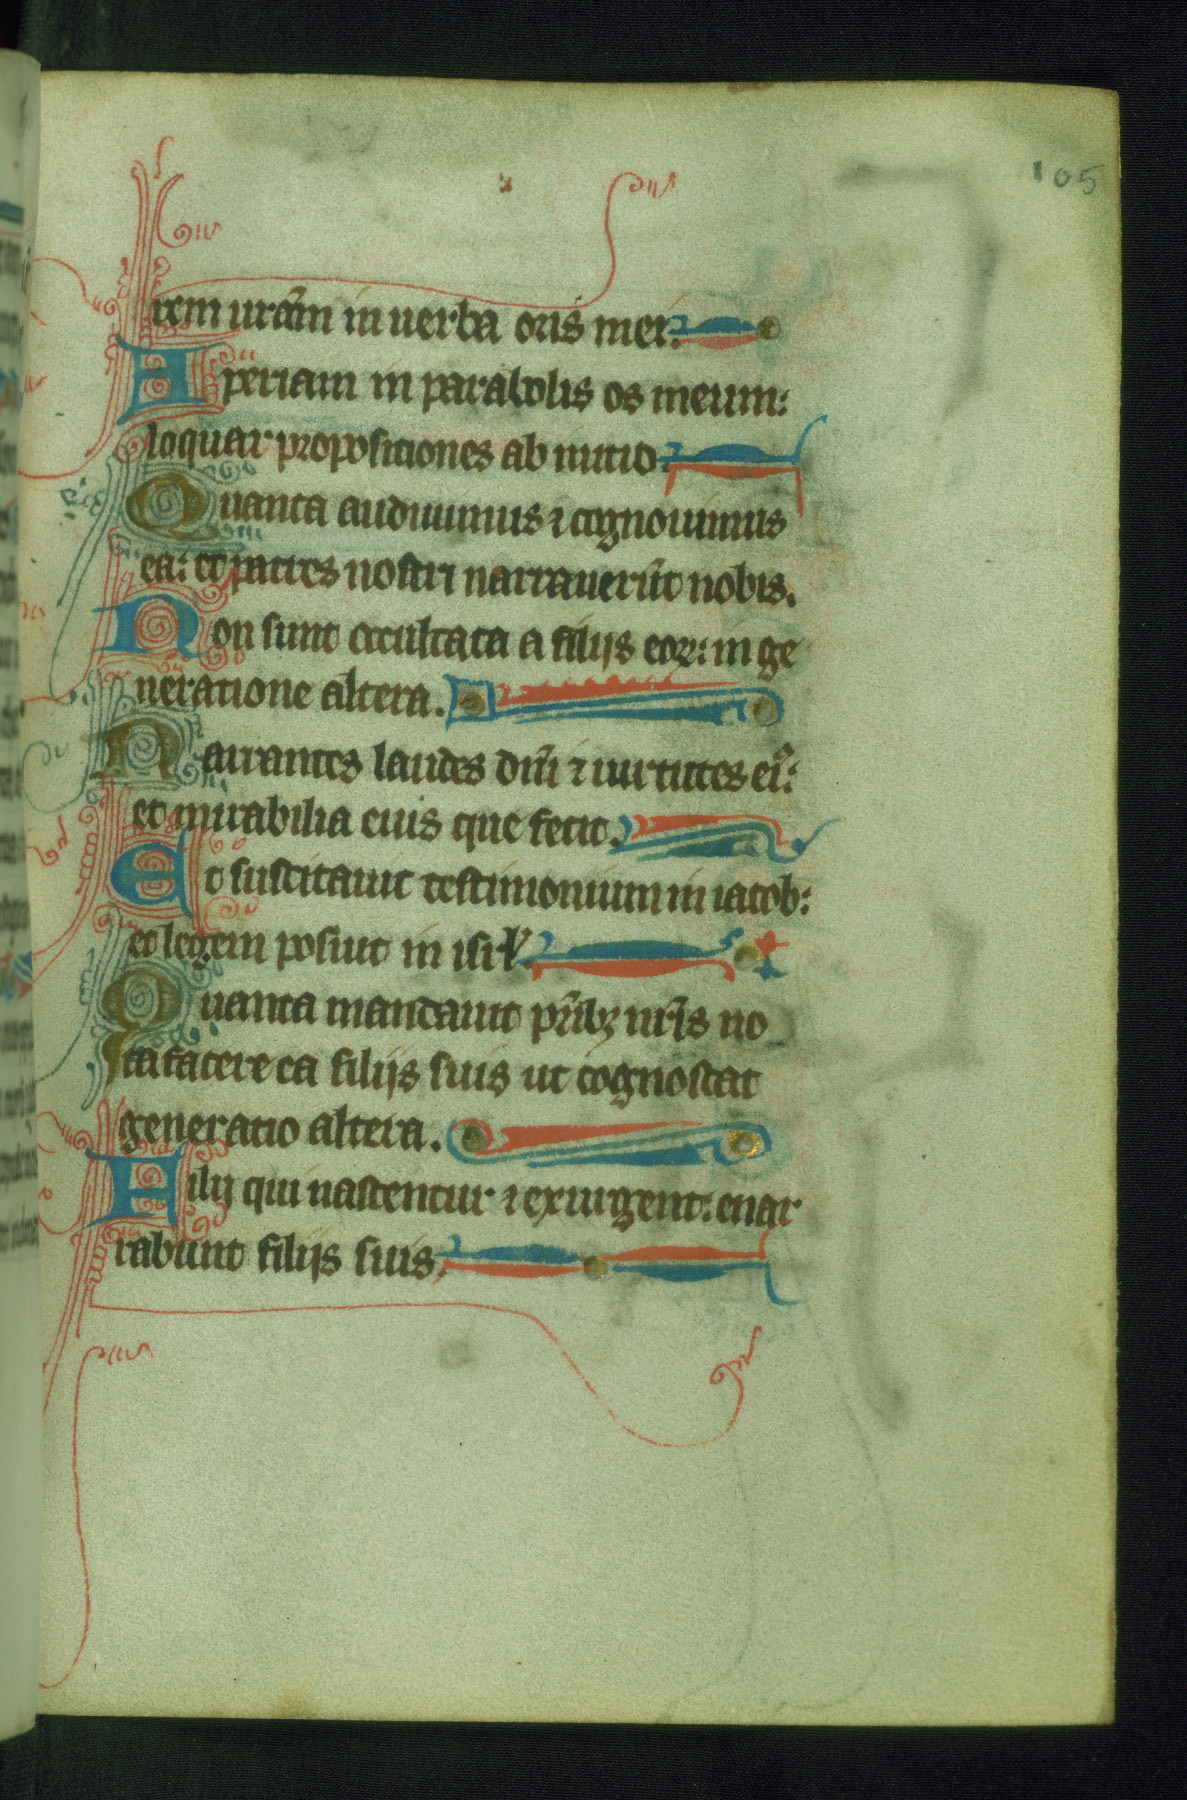 105
rem urām in uerba oris mei.
Aperiam in parabolis os meum:
loquar propositiones ab initio.
Quanta audiuimus ⁊ cognouimus
ea: et patres nostri narrauerūt nobis.
Non sunt occultata a filijs eoꝝ: in ge
neratione altera.
Narrantes laudes dn̄i ⁊ uirtutes ei᷒:
et mirabilia eius que fecit.
Et suscitauit testimonium in iacob:
et legem posuit in isrl̓.
Quanta mandauit pr̄ibꝫ nr̄is no
ta facere ea filijs suis ut cognoscat
generatio altera.
Filij qui nascentur ⁊ exurgent: enar
rabunt filijs suis.